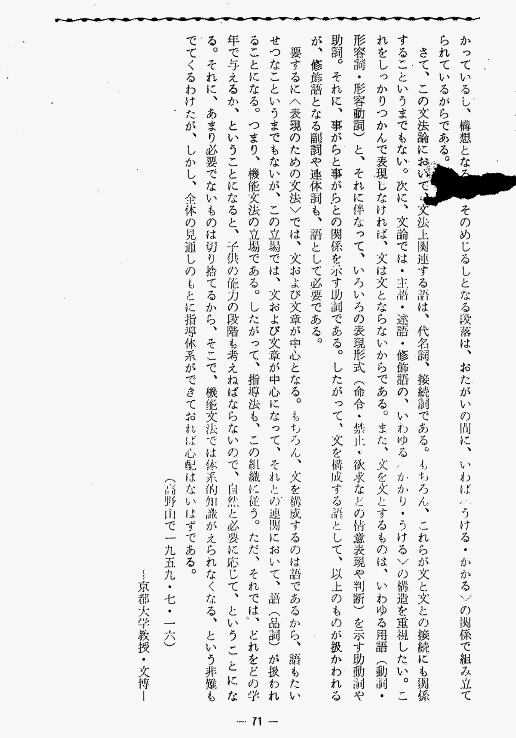 かっているし、構想となる そのめじるしとなる段落は、おたがいの間に、いわば〈うける・かかる〉の関係で組み立て
られているがらである。
さて、この文法論において、文法上関連する語は、代名詞、接続詞である。もちろん、これらが文と文との接続にも関係
するこというまでもない。次に、文論では・主語・述語・修飾語の、いわゆる〈かかり・うける〉の構造を重視したい。こ
れをしっかりつかんで表現しなければ、文は文とならないからである。また、文を文とするものは、いわゆる用語（動詞・
形容詞・形容動詞）と、それに伴なって、いろいろの表現形式（命令・禁止・欲求などの情意表現や判断）を示す助動詞や
助詞。それに、事がらと事がらとの関係を示す助詞である。したがって、文を構成する語として、以上のものが扱かわれる
が、修飾語となる副詞や連体詞も、語として必要である。
要するに〈表現のための文法〉では、文および文章が中心となる。もちろん、文を構成するのは語であるから、語もたい
せつなこというまでもないが、この立場では、文および文章が中心になって、それとの連関において、語（品詞）が扱われ
ることになる。つまり、機能文法の立場である。したがって、指導法も、この組織に従う。ただ、それでは、どれをどの学
年で与えるか、ということになると、子供の能力の段階も考えねばならないので、自然と必要に応じて、ということにな
る。それに、あまり必要でないものは切り捨てるから、そこで、機能文法では体系的知識がえられなくなる、という非難も
でてくるわけだが、しかし、全体の見通しのもとに指導体系ができておれば心配はないはずである。
（高野山で一九五九・七・一六）
—京都大学教授・文博—
— 71 —